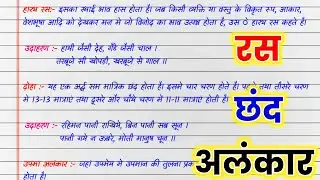 हास्य रस:- इसका स्थाई भाव हास होता है। जब किसी व्यक्ति या वस्तु के विकृत रूप, आकार,
वेशभूषा आदि को देखकर मन मे जो विनोद का भाव उत्पन्न होता है, उसे हास्य रस कहते हैं।
उदाहरण :- हाथी जैसी देह, गैंडे जैसी चाल।
तरबूजे सी खोपड़ी, खरबूजे से गाल॥
दोहा:- यह एक अर्द्ध सम मात्रिक छंद होता है। इसमे चार चरण होते हैं। पहले तथा तीसरे चरण
मे 13-13 मात्राए तथा दूसरे और चौथे चरण मे 11-11 मात्राए होती हैं।
उदाहरण :- रहिमन पानी राखिये, बिन पानी सब सून।
पानी गये न ऊबरे, मोती मानुष चून॥
उपमा अलंकार:- जहाँ उपमेय मे उपमान की तुलना
होता है।
रस
छंद
अलंकार